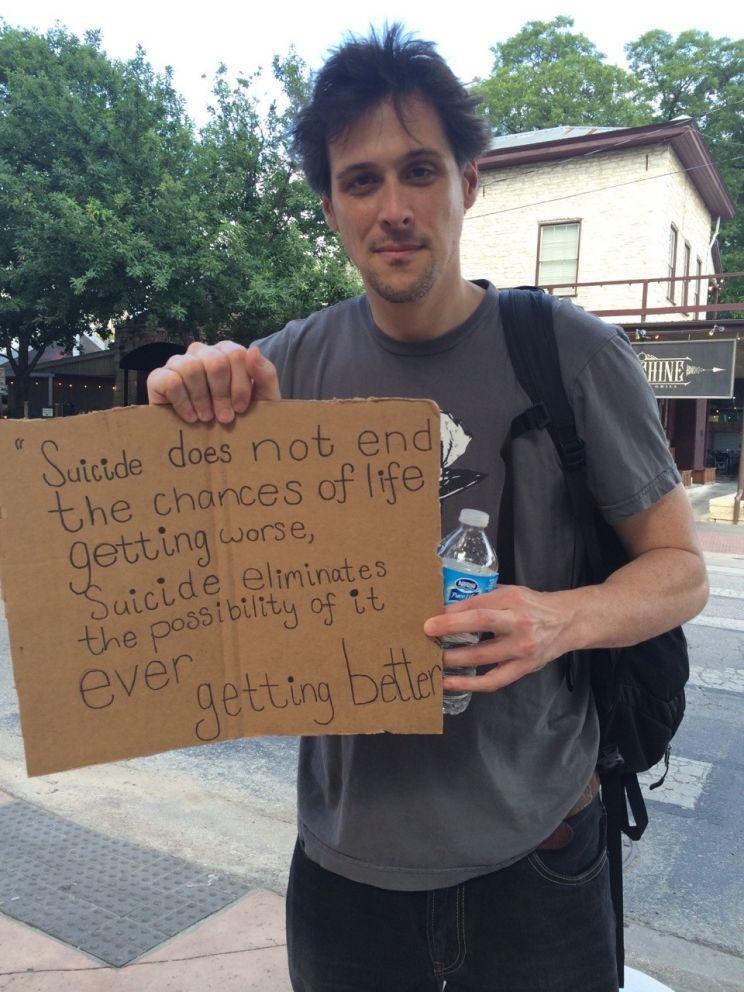 "Suicide does not end
the chances of life
getting worse,
Suicide eliminates
the possibility of it
ever getting better
Nestle
Pure Life
SHINE
GRILL